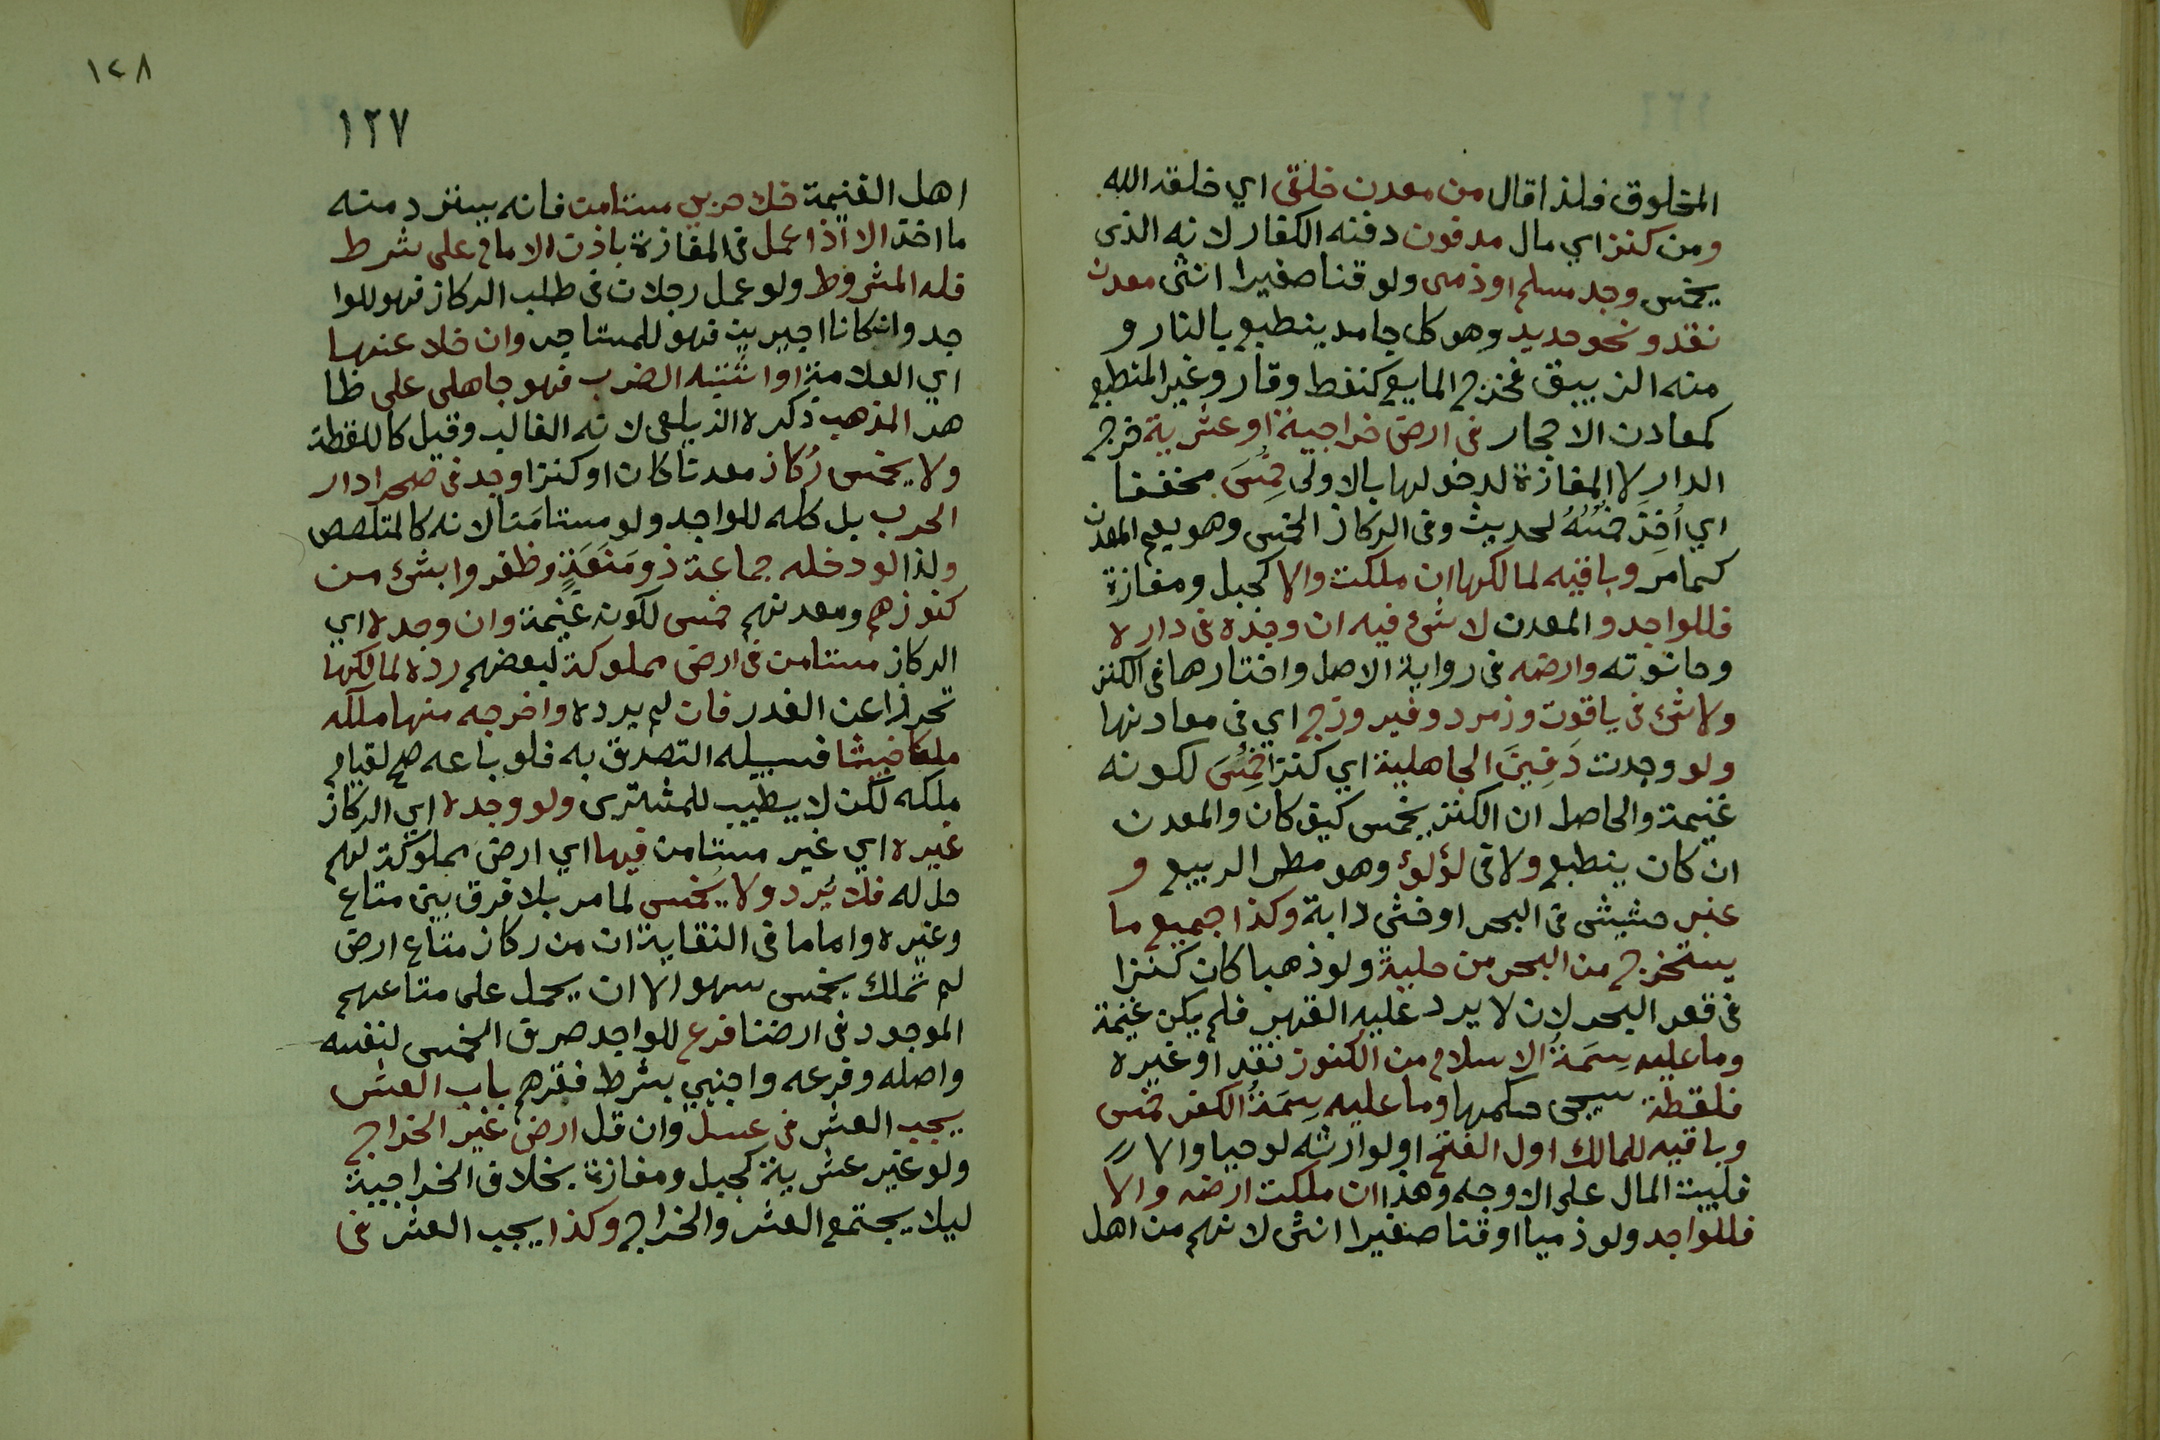 المخلوق فلذا قال من معدن خلقى اي خلقه الله
ومن كنز اي مال مدفون دفنه الكفار لانه الذى
يخمس وجد مسلم او ذمى ولو قنا صغيرا انثى معدن
نقد ونحو حديد وهو كل جامد ينطبع بالنار و
منه الزيبق فخرج المايع كنفط وقار وغير المنطبع
كمعادن الاحجار فى ارض خراجية او عشرية خرج
الدار لا المفازة لدخولها بالاولى خُمِسَ مخففا
اي أُخِذَ خمُسُهُ لحديث وفى الركاز الخمس وهو يعم المعدن
كما مر وباقيه لمالكها ان ملكت والا كجبل ومفازة
فللواجد والمعدن لا شئ فيه ان وجده فى داره
وحانوته وارضه فى رواية الاصل واختارها فى الكنز
ولا شئ فى ياقوت وزمرد وفيروزج اي فى معادنها
ولو وجدت دَفِينَ الجاهلية اي كنزا خُمِسَ لكونه
غنيمة والحاصل ان الكنز يخمس كيف كان والمعدن
ان كان ينطبع ولا فى لؤلؤ وهو مطر الربيع و
عنبر حشيش فى البحر او خثى دابة وكذا جميع ما
يستخرج من البحر من حلية ولو ذهبا كان كنزا
فى قعر البحر لان لا يرد عليه القهر فلم يكن غنيمة
وما عليه سِمَةُ الاسلام من الكنوز نقد او غيره
فلقطة سيجى حكمها وما عليه سِمَةُ الكفر خمس
وباقيه للمالك اول الفتح او لوارثه لو حيا والا
فلبيت المال على الاوجه وهذا ان ملكت ارضه والا
فللواجد ولو ذميا او قنا صغيرا انثى لانهم من اهل
١٢٨
١٢٧
اهل الغنيمة خلا حربي مستامن فانه يسترد منه
ما اخذ الا اذا عمل فى المفازة باذن الامام على شرط
فله المشروط ولو عمل رجلان فى طلب الركاز فهو للوا
جد وان كانا اجيرين فهو للمستاجر وان خلا عنها
اي العلامة او اشتبه الضرب فهو جاهلى على ظا
هر المذهب ذكره الزيلعى لانه الغالب وقيل كاللقطة
ولا يخمس رُكاز معدنا كان او كنزا وجد فى صحرا دار
الحرب بل كله للواجد ولو مستامَنا لانه كالمتلصص
ولذا لو دخله جماعة ذو مَنَعَةٍ وظفروا بشئ من
كنوزهم ومعدنهم خمس لكونه غنيمة وان وجده اي
الركاز مستامن فى ارض مملوكة لبعضهم رده لمالكها
تحرزا عن الغدر فان لم يرده واخرجه منها ملكه
ملكا خبيثا فسبيله التصدق به فلو باعه صح لقيام
ملكه لكن لا يطيب للمشترى ولو وجده اي الركاز
غيره اي غير مستامن فيها اي ارض مملوكة لهم
حل له فلا يُرد ولا يُخمس لما مر بلا فرق بين متاع
وغيره واما ما فى النقاية ان من ركاز متاع ارض
لم تملك يخمس سهو الا ان يحمل على متاعهم
الموجود فى ارضنا فرع للواجد صرف الخمس لنفسه
واصله وفرعه واجنبي بشرط فقرهم باب العشر
يجب العشر فى عسل وان قل ارض غير الخراج
ولو غير عشرية كجبل ومفازة بخلاف الخراجية
ليلا يجتمع العشر والخراج وكذا يجب العشر فى